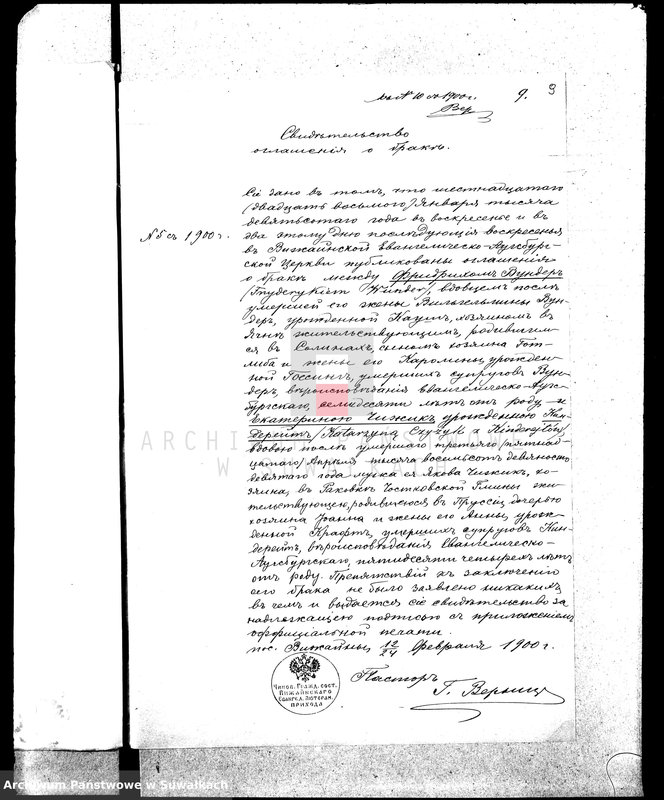 къ № 10 съ 1900 г.
Вер
9.
9
Свидѣтельство
оглашенія о бракѣ.
№ 5 съ 1900 г.
Сіе дано въ томъ, что шестнадцатаго
(двадцать восьмого) Января тысяча
девятьсотаго года въ воскресенье и въ
два этому дню послѣдующія воскресенья
въ Вижайнской Евангелическо-Аугсбург-
ской Церкви публикованы оглашенія
о бракѣ между Фридрихомъ Вундеръ
(Frydrykiem Winder), вдовцемъ послѣ
умершей его жены Вильгельмины Вун-
деръ, урожденной Каушъ, хозяиномъ въ
жительствующимъ, родившим-
ся въ сыномъ хозяина Гот-
либа и жены его Каролины, урожден-
ной Госсингъ, умершихъ супруговъ Вун-
деръ, вѣроисповѣданія евангелическо-Ауг-
бургскаго, семидесяти лѣтъ отъ роду и
Екатериною Чижикъ урожденною Кин-
дерейтъ (Katarzyna Czyżyk z Kinderejtów)
вдовою послѣ умершаго третьяго (пятнад-
цатаго) Апрѣля тысяча восемьсотъ девяносто
девятаго года мужа ея Якова Чижикъ, хо-
зяина, въ Раковкѣ Чостковской Гмины жи-
тельствующею, родившеюся въ Пруссіи, дочерью
хозяина Іоанна и жены его Анны, урож-
денной Крафтъ, умершихъ супруговъ Кин-
дерейтъ, вѣроисповѣданія Евангелическо-
Аугсбургскаго, пятидесяти четырехъ лѣтъ
отъ роду. Препятствій къ заключенію
сего брака не было заявлено никакихъ
въ чемъ и выдается сіе свидѣтельство за
надлежащею подписью съ приложеніемъ
оффиціальной печати.
пос. Вижайны 12/24 февраля 1900 г.
Пасторъ
Г.
Чинов. Гражд. сост.
Вижайнскаго
Евангел. Лютеран.
прихода
ARCHIWUM PAŃSTWOWE
W SUWAŁKACH
Archiwum Państwowe w Suwałkach